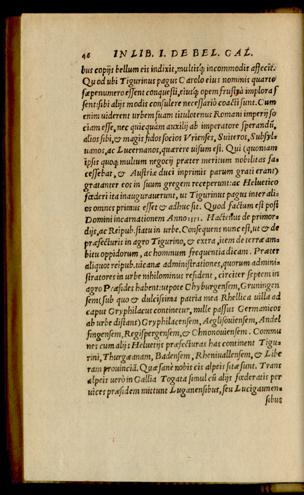 46 IN LIB. I. DE BEL. GAL.
bus copijs bellum eis indixit, multisq; incommodis affecit.
Quod ubi Tigurinus pagus Carolo eius nominis quarto
sæpenumero essent conquesti, eiusq; opem frustra implorassent:
sibi alijs modis consulere necessariò coacti sunt. Cum
enim uiderent urbem suam titulotenus Romani imperij so
ciam esse, nec quicquam auxilij ab imperatore sperandũ,
alios sibi, & magis fidos socios Vrienses, Suiteros, Subsyl-
uanos, ac Lucernanos, quærere uisum est. Qui (quoniam
ipsis quoq; multum negocij præter meritum nobilitas fa-
cessebat, & Austriæ duci inprimis parum grati erant)
gratanter eos in suum gregem receperunt: ac Heluetico
fœderi ita inaugurauerunt, ut Tigurinus pagus inter ali
os omnes primus esset & adhuc sit. Quod factum est post
Domini incarnationem Anno 1351. Hactenus de primor-
dijs, ac Reipub. statu in urbe. Consequens nunc est, ut & de
præfecturis in agro Tigurino, & extra, item de terræ am-
bitu oppidorum, ac hominum frequentia dicam. Præter
aliquot reipub. uicanæ administrationes, quorum admini-
stratores in urbe nihilominus resident, circiter septem in
agro Præsides habent: utpote Chyburgensem, Gruningen
sem (sub quo & dulcissima patria mea Rhellica uilla ad
caput Gryphilacus continetur, nulle passus Germanicos
ab urbe distans) Gryphilensem, Aeglisouiensem, Andel
fingensem, Regispergensem, & Chnonouiensem. Commu
nes cum alijs Heluetijs præfecturas hat continent Tigu-
rini, Thurgæanam, Badensem, Rhenivallensem, & Libe
ram prouinciã. Quæ sanè nobis cis alpeis sitæ sunt. Trans
alpeis uerò in Gallia Togata simul cũ alijs fœderatis per
uices præsidem mittunt Luganensibus, seu Lucigaunen-
sibus